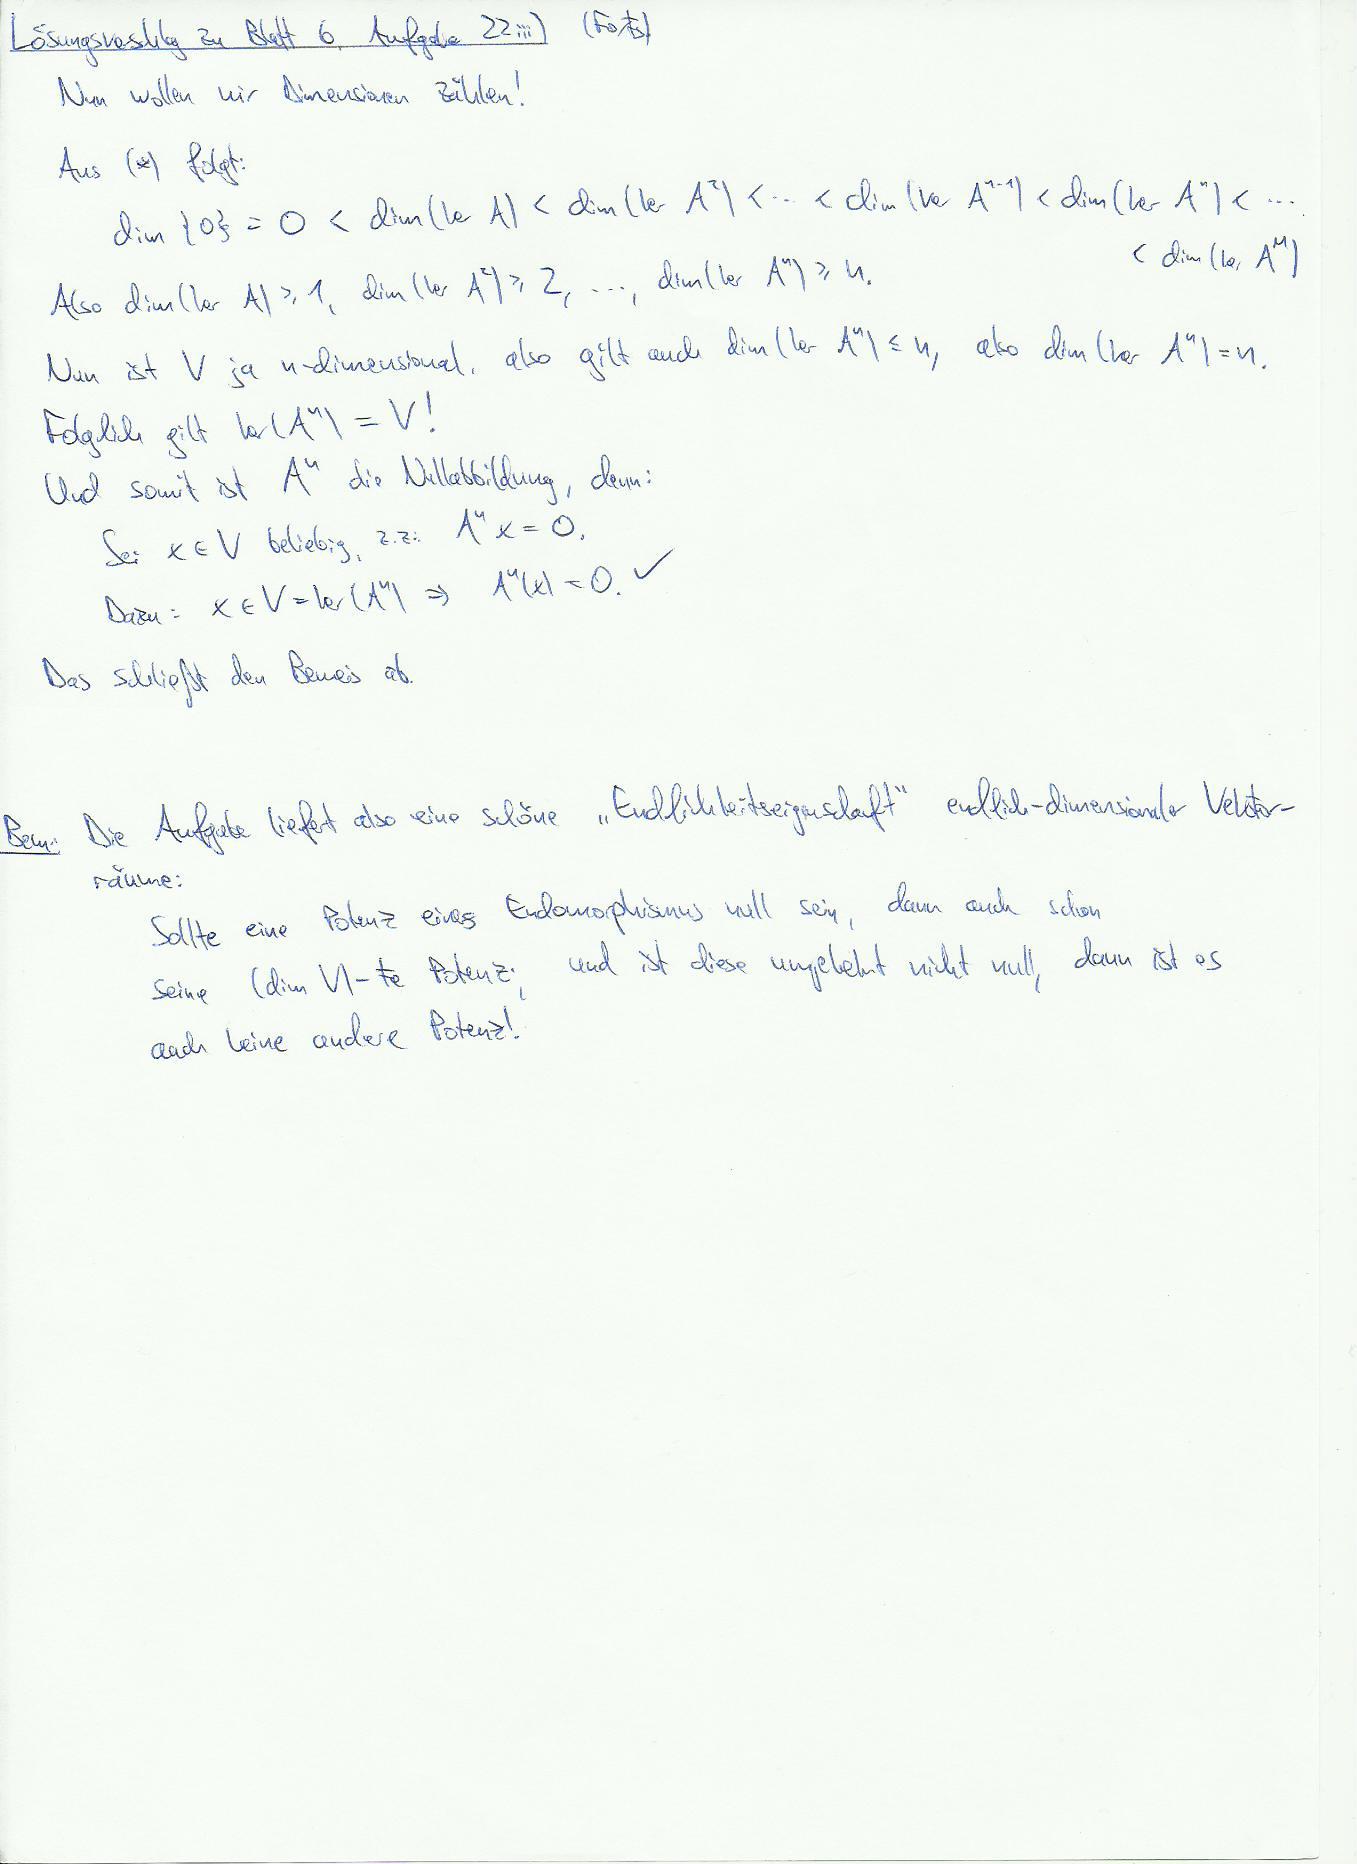 Lösungsvorschlag zu Blatt 6, Aufgabe 22iii) (Forts)
Nun wollen wir Dimensionen zählen!
Aus (*) folgt:
dim {0} = 0 < dim(ker A) < dim(ker A²) < ... < dim(ker Aⁿ⁻¹) < dim(ker Aⁿ) < ...
< dim(ker Aᴹ)
Also dim(ker A) ≥ 1, dim(ker A²) ≥ 2, ..., dim(ker Aⁿ) ≥ n.
Nun ist V ja n-dimensional, also gilt auch dim(ker Aⁿ) ≤ n, also dim(ker Aⁿ) = n.
Folglich gilt ker(Aⁿ) = V!
Und somit ist Aⁿ die Nullabbildung, denn:
Sei x ∈ V beliebig, z.z.: Aⁿx = 0.
Dazu: x ∈ V = ker(Aⁿ) ⇒ Aⁿ(x) = 0. ✓
Das schließt den Beweis ab.
Bem.: Die Aufgabe liefert also eine schöne „Endlichkeitseigenschaft“ endlich-dimensionaler Vektor-
räume:
Sollte eine Potenz eines Endomorphismus null sein, dann auch schon
seine (dim V)-te Potenz; und ist diese umgekehrt nicht null, dann ist es
auch keine andere Potenz!